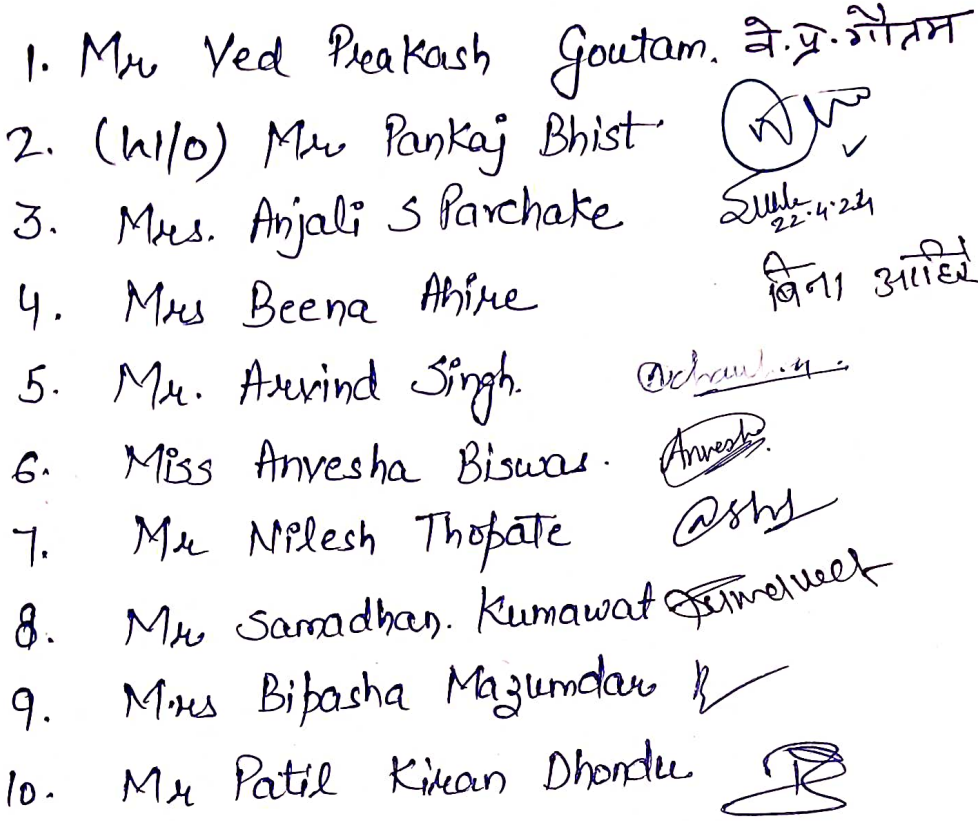 1. Mr Ved Prakash Goutam. वे.प्र.गौतम
2. (W/o) Mr Pankaj Bhist
3. Mrs. Anjali S Parchake 22.4.24
4. Mrs Beena Ahire बिना आहिरे
5. Mr. Arvind Singh.
6. Miss Anvesha Biswas. Anvesha
7. Mr Nilesh Thopate
8. Mr Samadhan. Kumawat
9. Mrs Bipasha Mazumdar
10. Mr Patil Kiran Dhondu